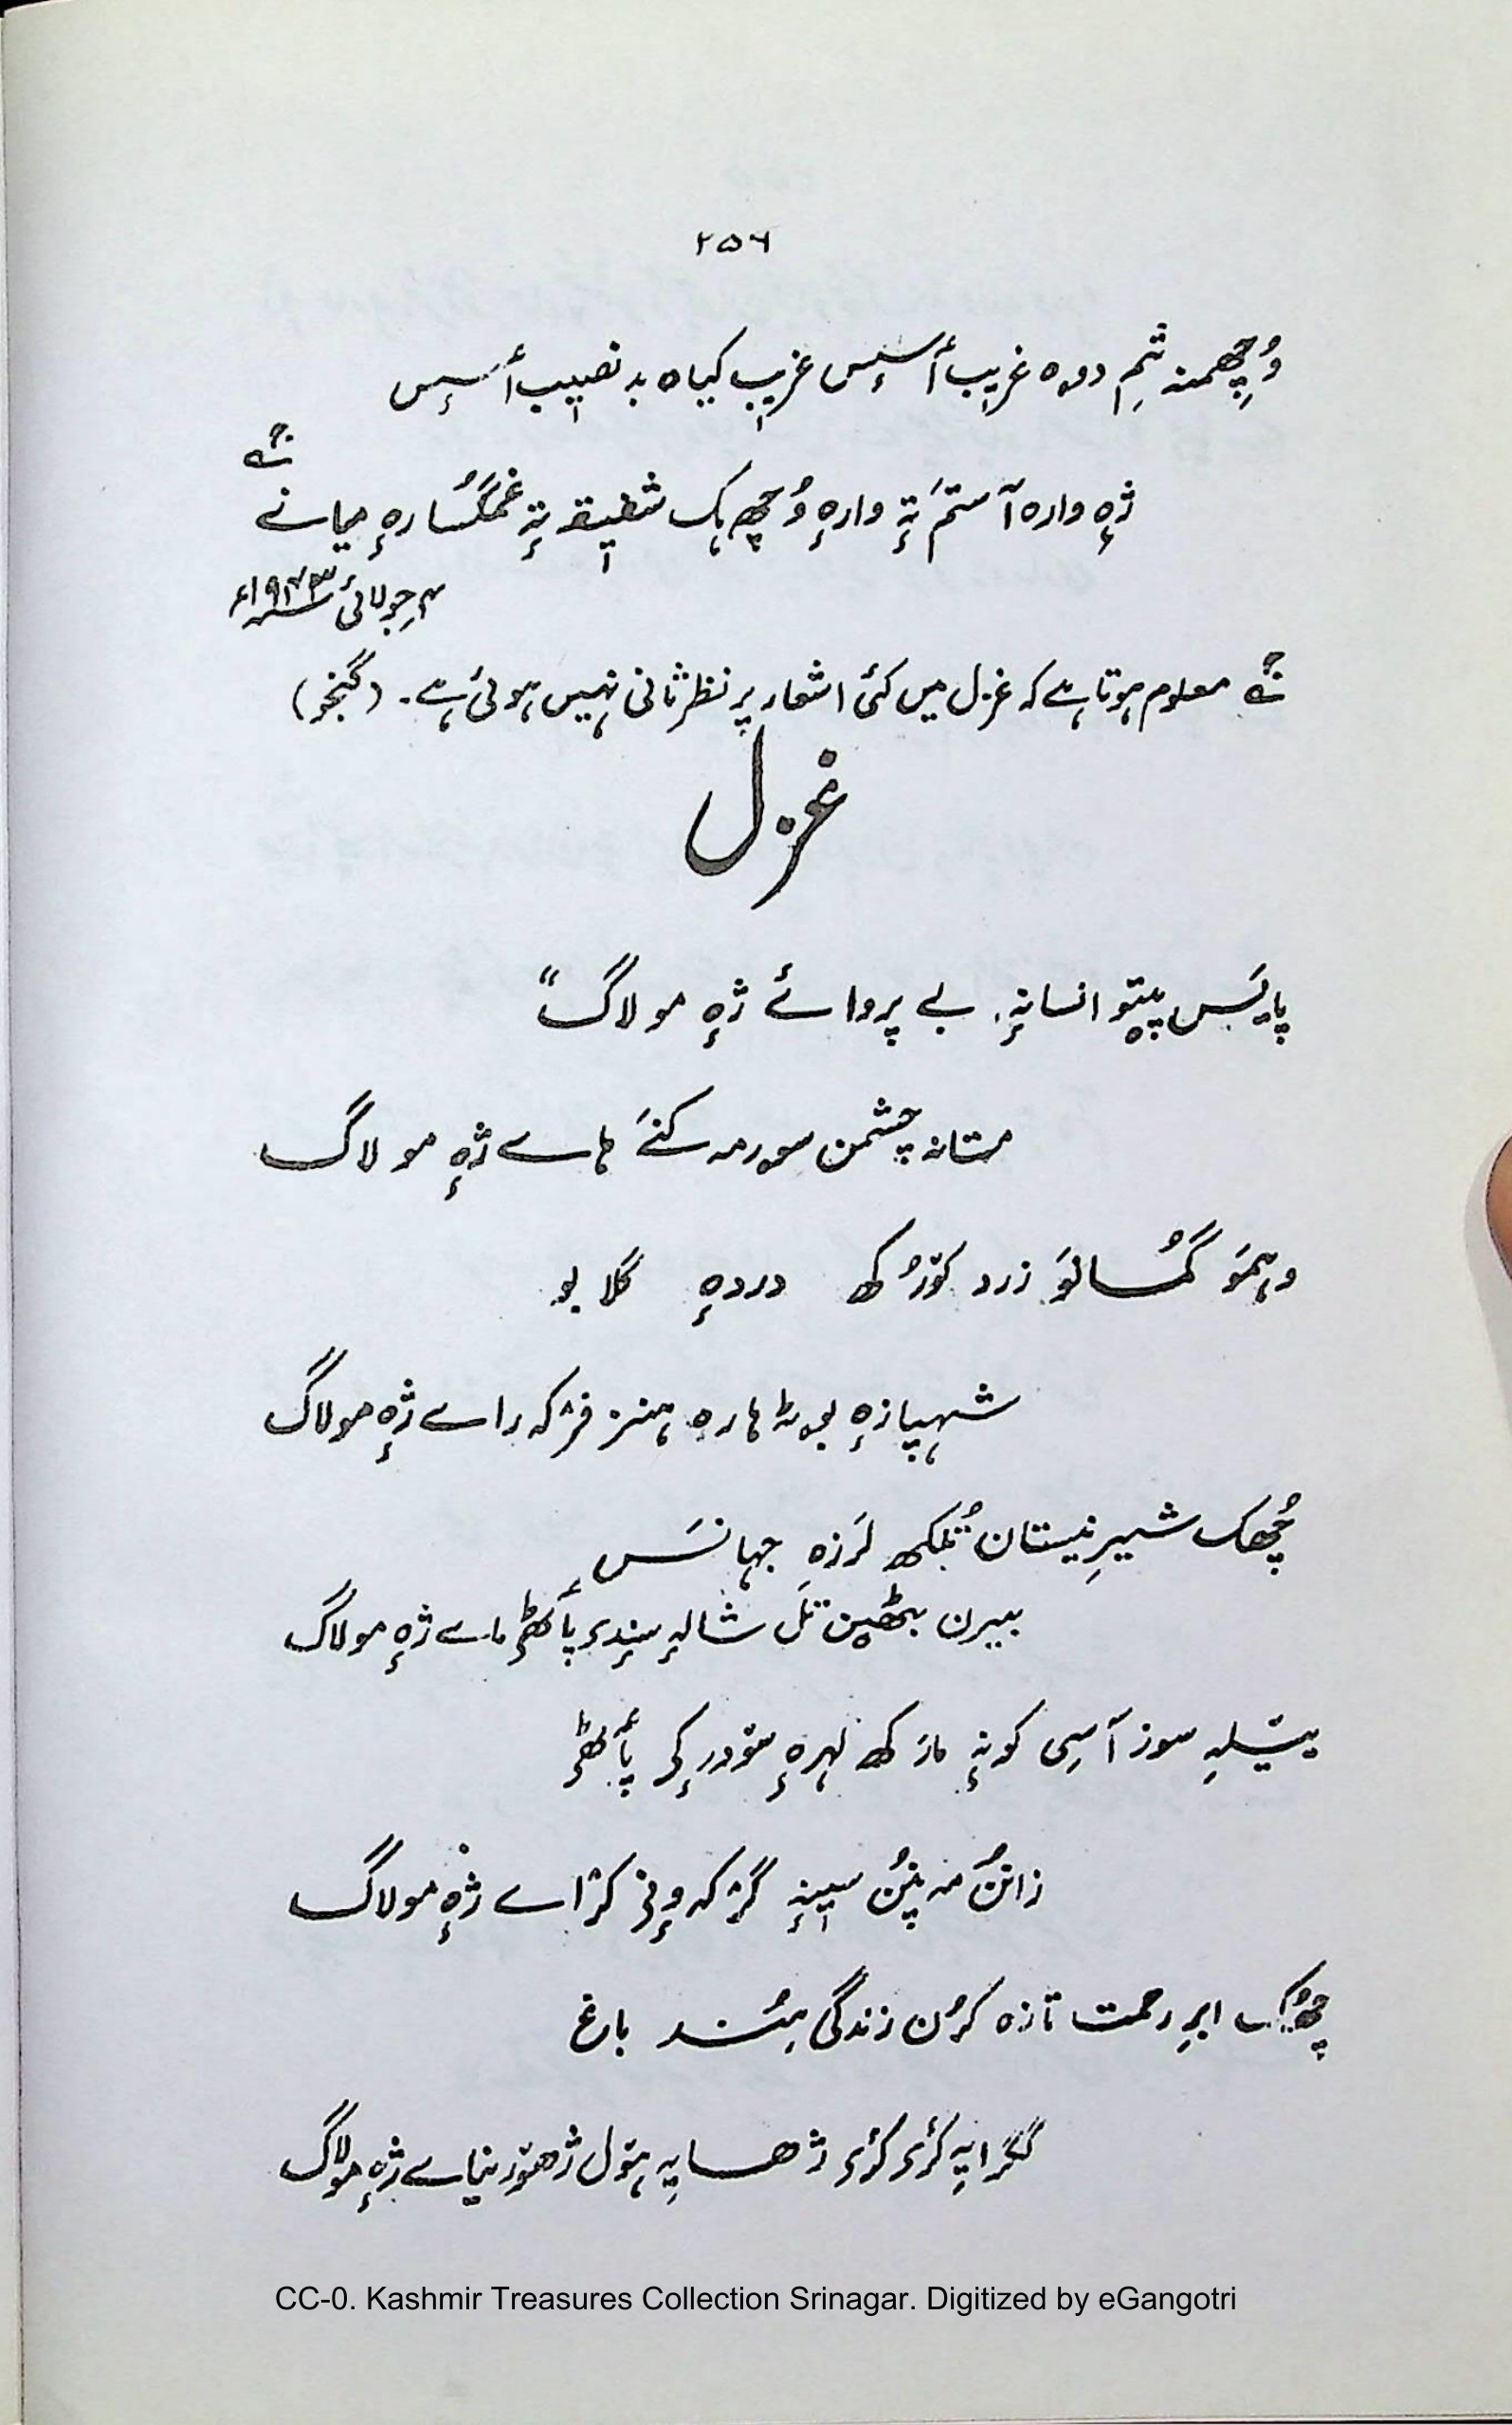 ۲۵۶
وُچھِمنہ تٕم دوہ غریٖب أسِس غریٖب کیاہ بد نصیٖب أسِس
ژٕہ وارہ آستم تہٕ وارہٕ وُچھ ہک شفیٖقہ تہٕ غمگُسارہٕ میانے
۴؍جولائی ۱۹۴۳ء
معلوم ہوتا ہے کہ غزل میں کئی اشعار پر نظر ثانی نہیں ہوئی ہے۔ (گنجو)
غزل
پایَس پیتو انسانہٕ. بے پروائے ژہٕ مو لاگ"
مستانہ چشمن سورمہ کنَے ہاے ژہٕ مو لاگ
وہمَو گُمانَو زرد کوٚرُکھ دردہٕ گلابو
شہپازہٕ ہارہ ہنز فژکہ راے ژہٕ مولاگ
چُھک شیرِ نیستان تُلکھ لَرزہِ جہانَس
بیرن بٹھین تَل شالہٕ سٕندؠ پأٹھؠ ماے ژہٕ مولاگ
ییٚلہِ سوز آسِی کونہٕ مارَکھ لہرہٕ سوٚدرٕکؠ پأٹھؠ
زانُن مہ پنُن سیٖنہٕ گژکہ وٕنؠ کژاے ژہٕ مولاگ
چھُک ابرِ رحمت تازہ کرُن زندگی ہُند باغ
گگرایہِ کٔرؠ کٔرؠ ژھایہِ ہوٚل ژھوٚر نیاے ژہٕ مولاگ
CC-0. Kashmir Treasures Collection Srinagar. Digitized by eGangotri